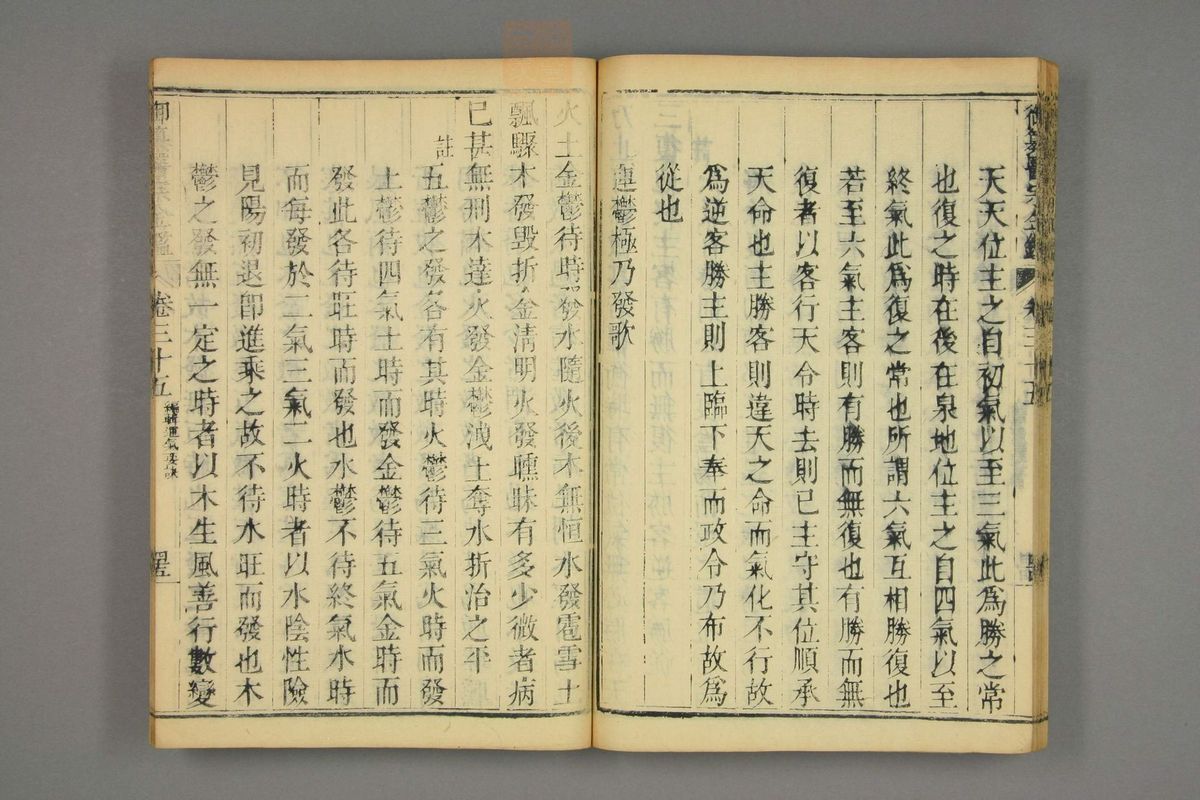 天天位主之自初氣以至三氣此爲勝之常
也復之時在後在泉地位主之自四氣以至
終氣此爲復之常也所謂六氣互相勝復也
若至六氣主客則有勝而無復也有勝而無
復者以客行天令時去則已主守其位順承
天命也主勝客則違天之命而氣化不行故
爲逆客勝主則上臨下奉而政令乃布故爲
從也
運鬱極乃發歌
火土金鬱待時發水隨火後木無恒水發雹雪土
飄驟木發毀折金清明火發曛昧有多少微者病
已甚無刑木達火發金鬱洩土奪水折治之平
註
五鬱之發各有其時火鬱待三氣火時而發
土鬱待四氣土時而發金鬱待五氣金時而
發此各待旺時而發也水鬱不待終氣水時
而每發於二氣三氣二火時者以水陰性險
見陽初退即進乘之故不待水旺而發也木
鬱之發無一定之時者以木生風善行數變
卷三十五
編輯運氣要訣